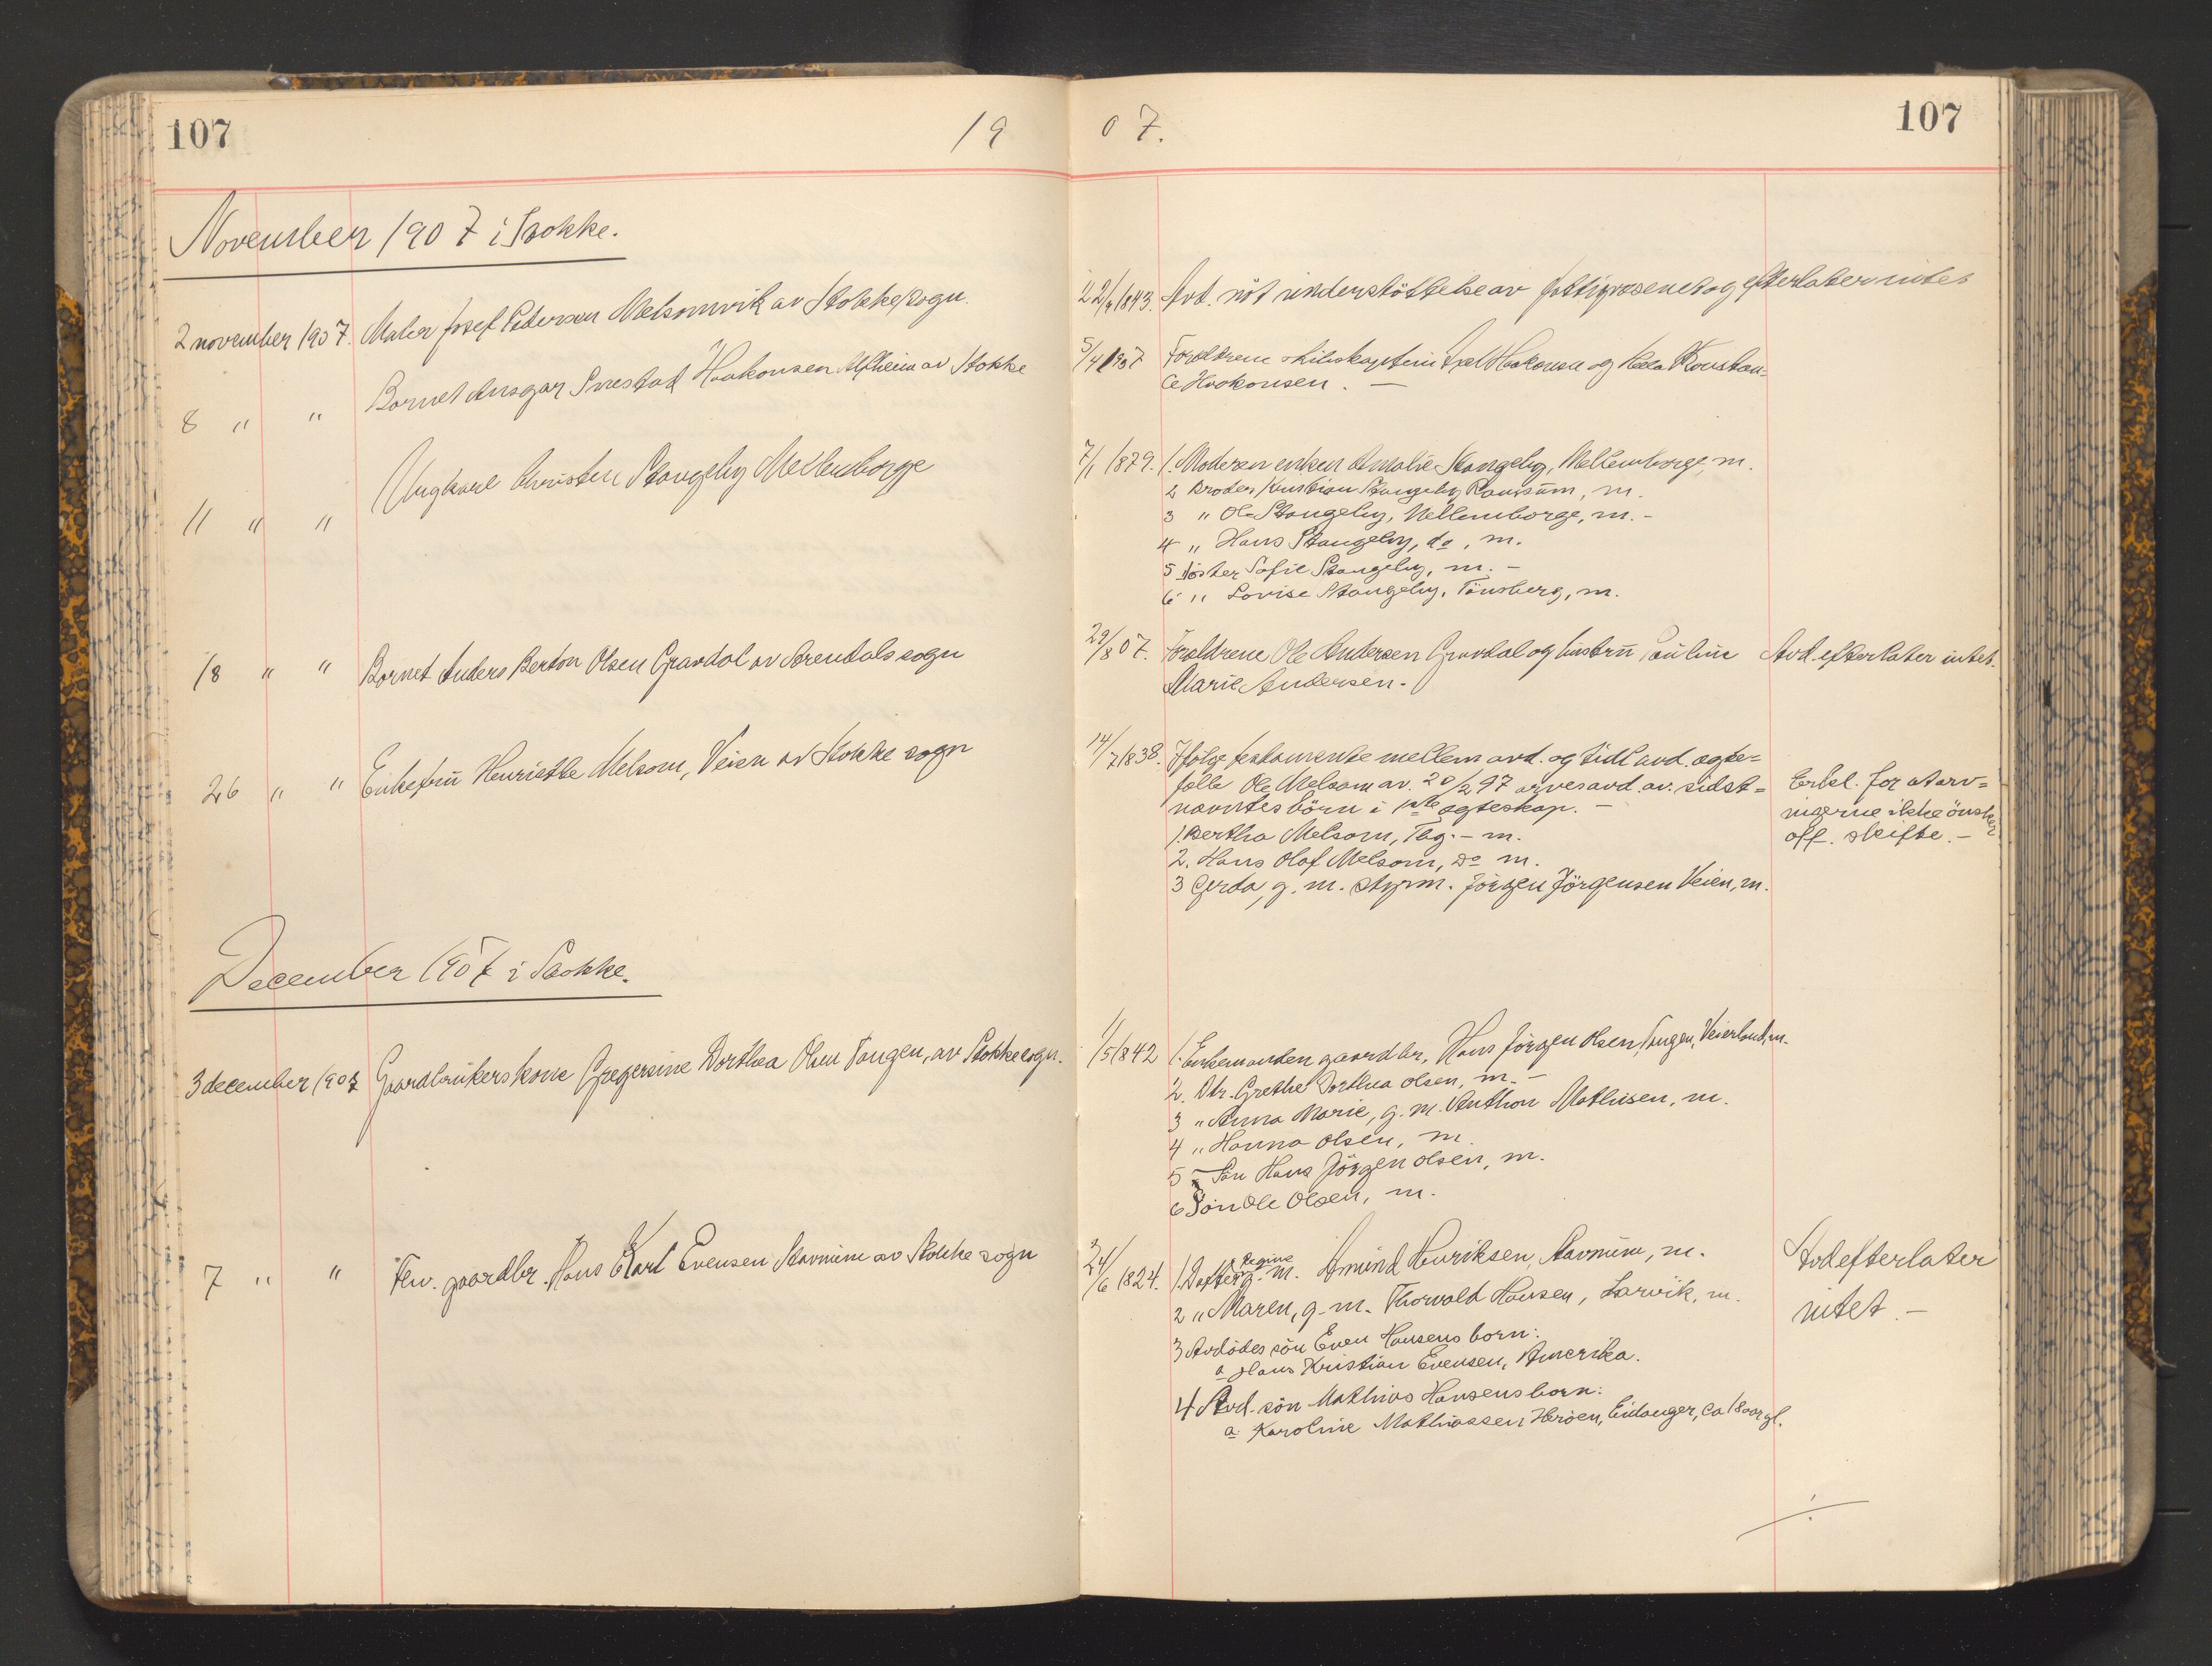 107
19 07.
107
November 1907 i Stokke.
2 november 1907. Maler Josef Pedersen Melsomvik av Stokke sogn.
22/4 1843. Avd. nöt understöttelse av fattigvæsenet og efterlater intet
8 " " Barnet Ansgar Snestad Haakonsen Alfheim av Stokke
5/4 1907 Forældrene skibskaptein Axel Haakonsen og Konstan=
ce Haakonsen. —
11 " " Ungkarl Christen Stangeby Mellemborge
7/1 1879. 1. Moderen enken Amalie Stangeby, Mellemborge, m.
2 Broder Kristian Stangeby, m.
3 " Ole Stangeby, Mellemborge, m. -
4 " Hans Stangeby, do, m.
5 Söster Sofie Stangeby, m. -
6 " Lovise Stangeby, Tönsberg, m.
18 " " Barnet Anders Berton Olsen Gravdal av Arendals sogn
29/8 07. Forældrene Ole Andersen Gravdal og hustru Pauline
Marie Andersen.
Avd. efterlater intet.
26 " " Enkefru Henriette Melsom, Veien av Stokke sogn
14/7 1838. Ifölge testamente mellem avd. og tidl. avd. ægte=
fælle Ole Melsom av 20/2 97 arves avd. av sidst=
nævntes börn i 1ste ægteskap. -
1. Bertha Melsom, Tbg. - m.
2. Hans Olaf Melsom, do m.
3 Gerda, g. m. styrm. Jörgen Jörgensen Veien, m.
Erkl. for at arv=
ingerne ikke önsker
off. skifte. -
December 1907 i Stokke.
3 december 1907 Gaardbrukerskone Gregersine Dorthea Olsen Tangen, av Stokke sogn.
1/5 1842 1. Enkemanden gaardbr. Hans Jörgen Olsen, Tangen, Veierland, m.
2. Dtr. Grethe Dorthea Olsen, m. -
3 " Anna Marie, g. m. Anthon Mathisen, m.
4 " Hanna Olsen, m.
5 Sön Hans Jörgen Olsen, m.
6 Sön Ole Olsen, m.
7 " " Fhv. gaardbr. Hans Karl Evensen Stavnum av Stokke sogn
24/6 1824. 1. Datter Regine g. m. Amund Henriksen, Stavnum, m.
2 " Maren, g. m. Thorvald Hansen, Larvik, m.
3 Avdödes sön Even Hansens born:
a Hans Kristian Evensen, Amerika.
4 Avd. sön Mathias Hansens born:
a. Karoline Mathiassen Heröen, Eidanger, ca 18 aar gl.
Avd efterlater
intet -